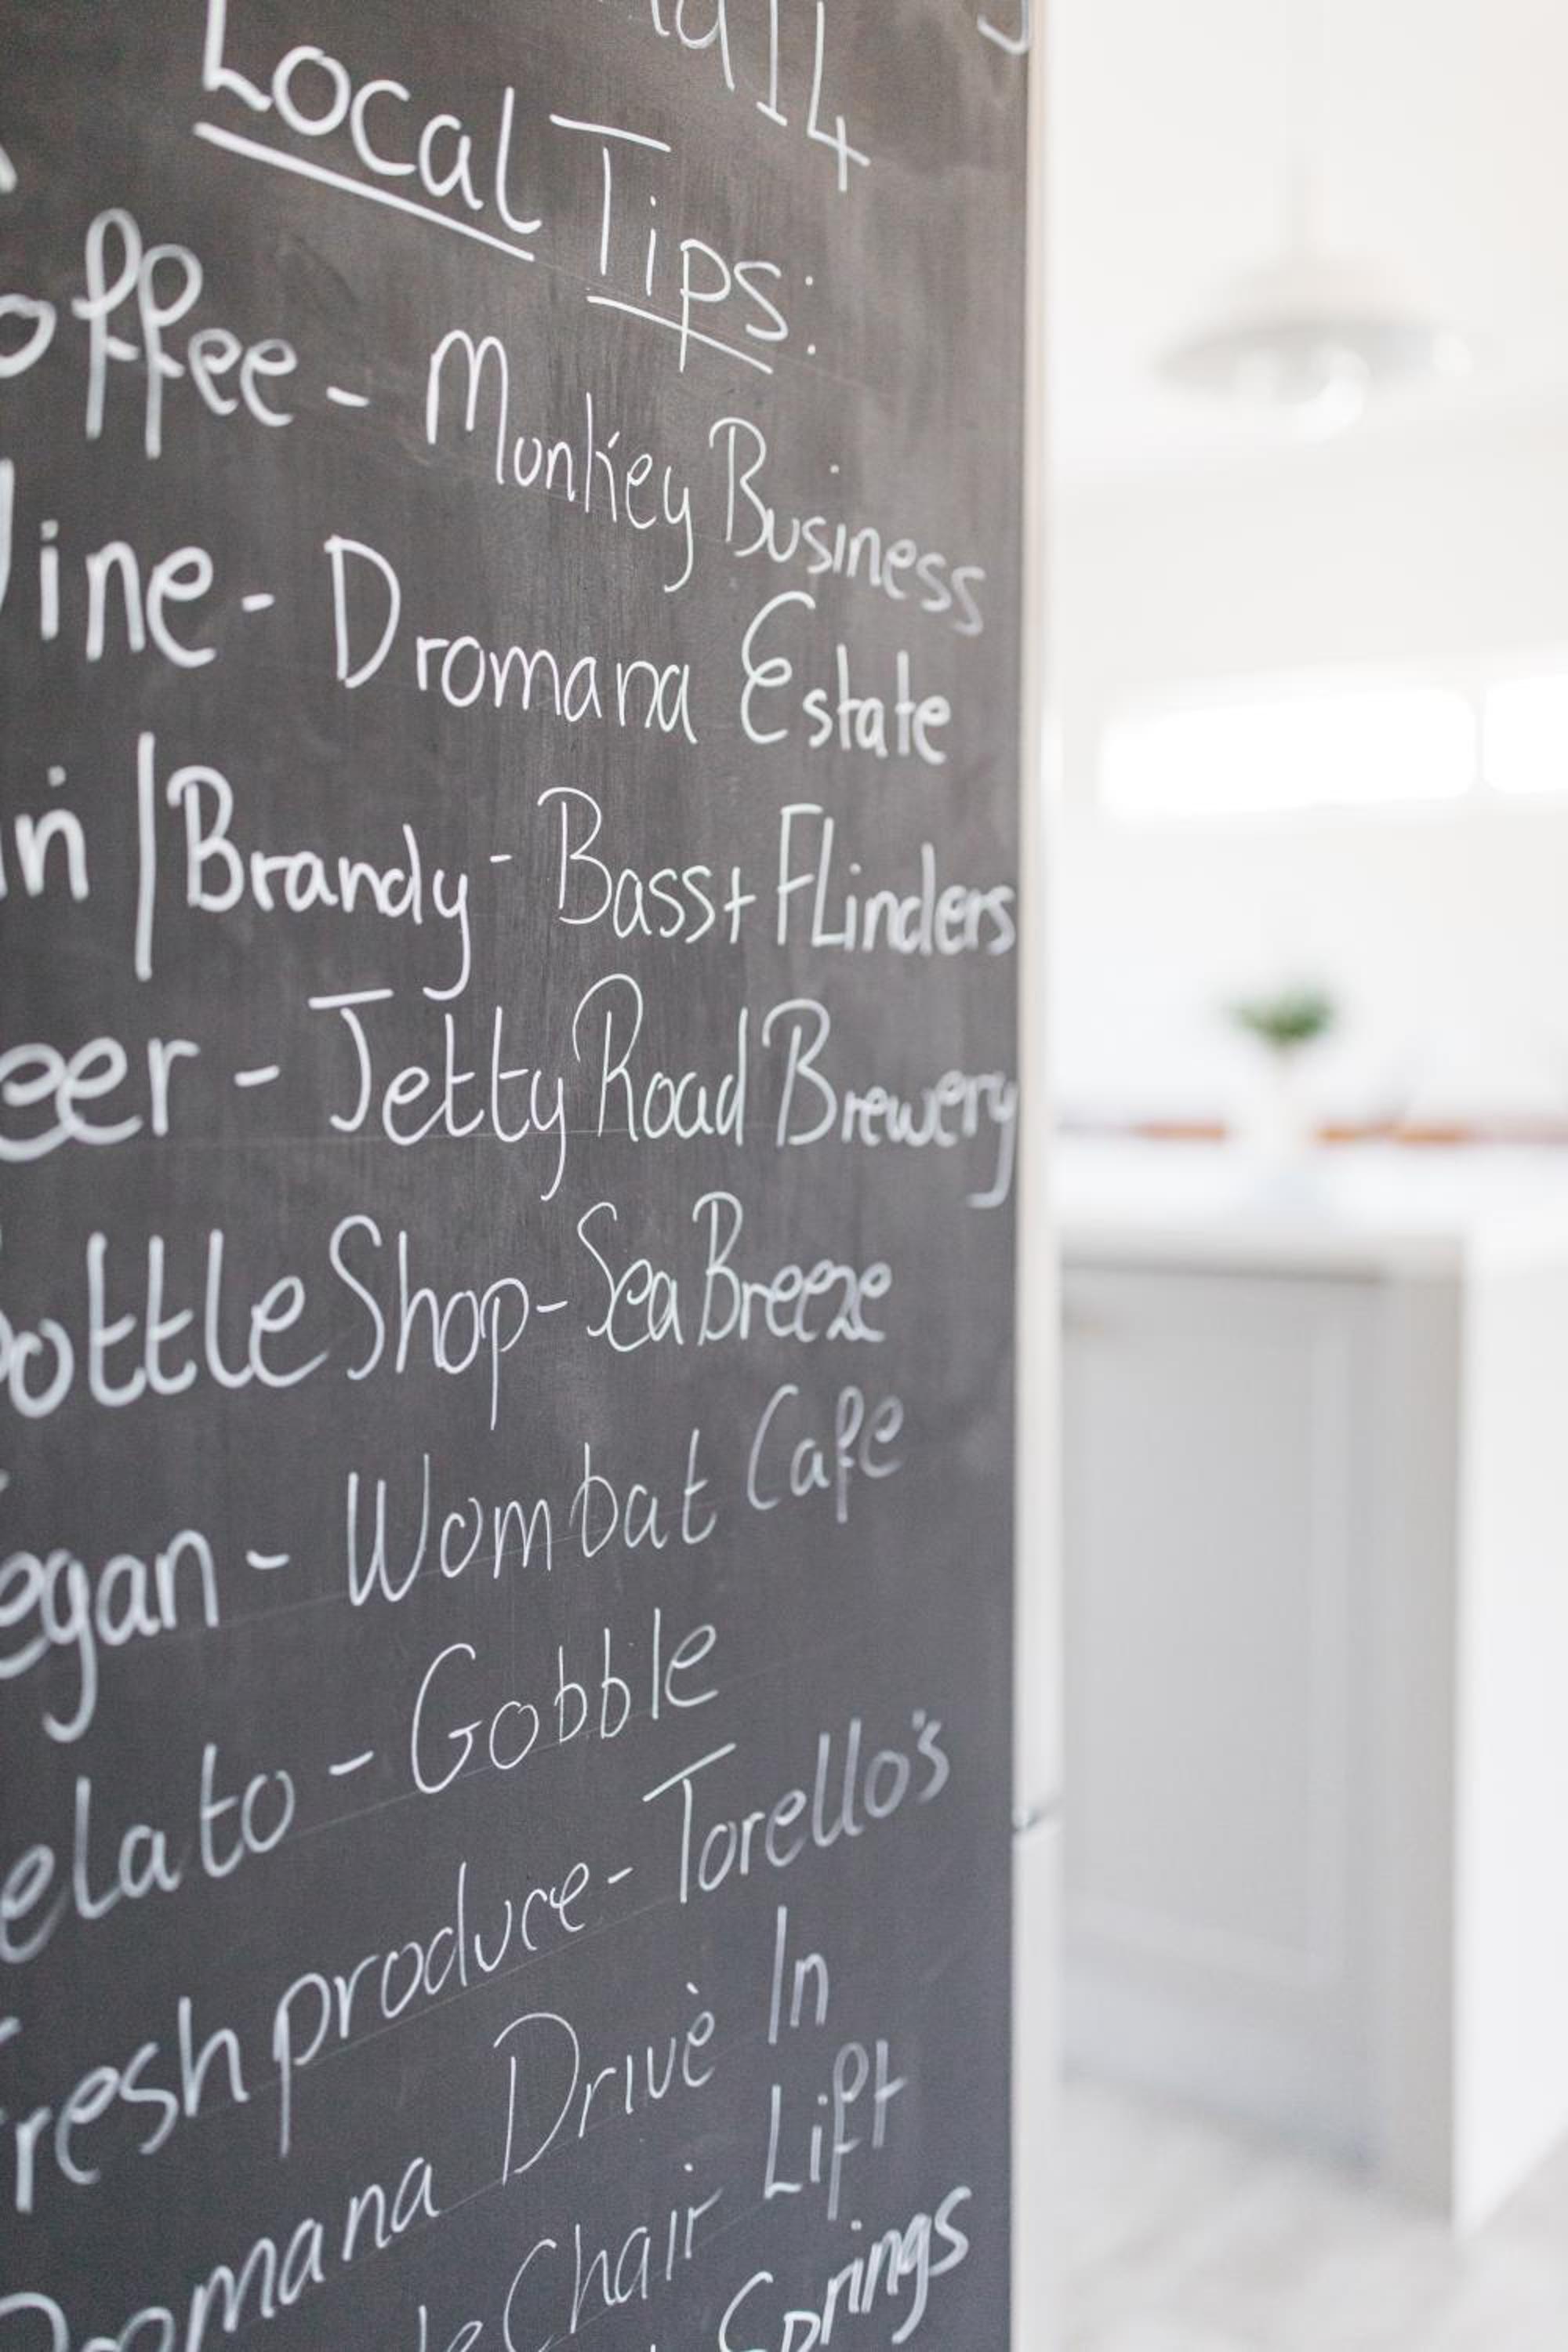 Local Tips:
offee - Monkey Business
ine - Dromana Estate
in / Brandy - Bass + Flinders
eer - Jetty Road Brewery
ottle Shop - Sea Breeze
egan - Wombat Cafe
elato - Gobble
resh produce - Torello's
Dromana Drive In
le Chair Lift
Springs